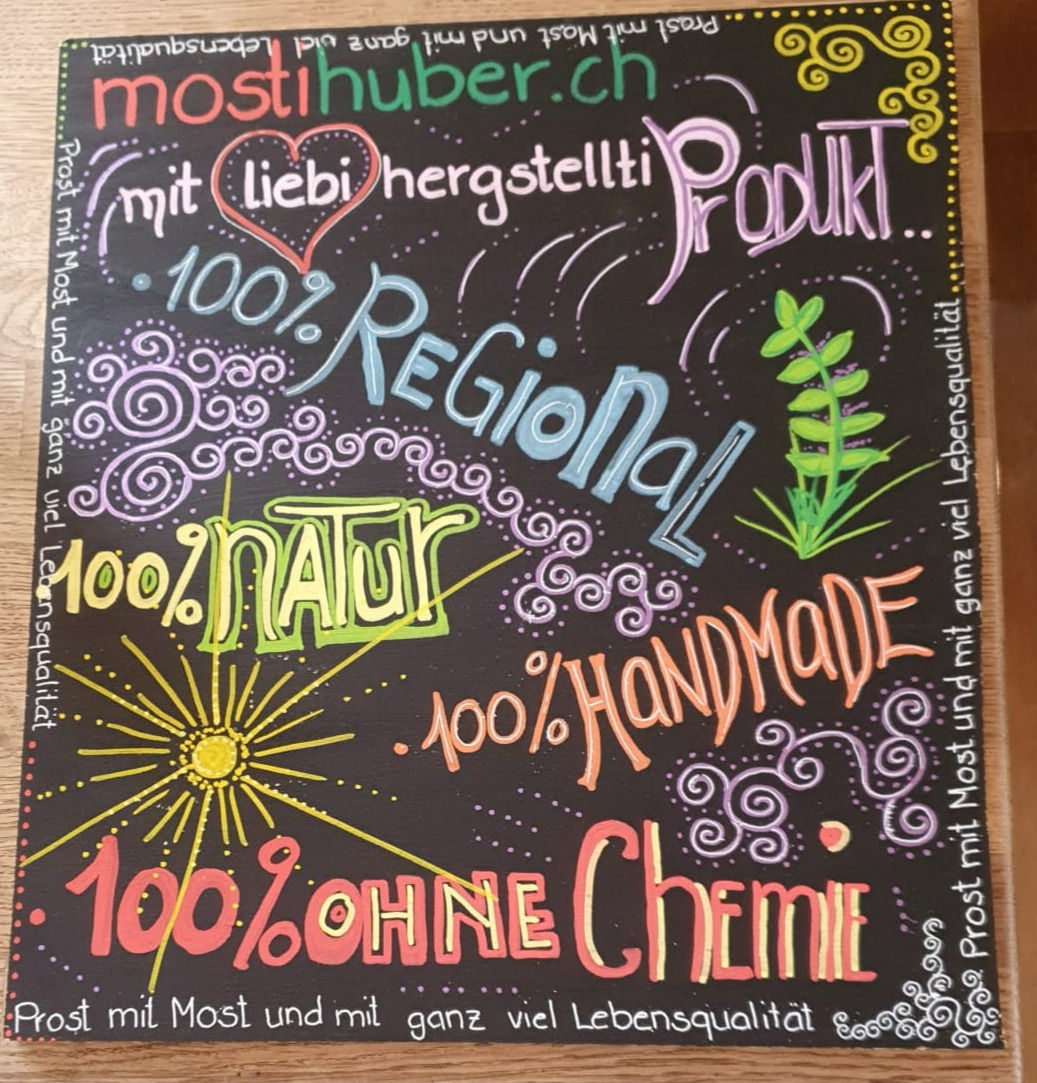 Prost mit Most und mit ganz viel Lebensqualität
mostihuber.ch
mit liebi hergstellti Produkt..
100% Regional
100% Natur
100% Handmade
100% ohne Chemie
Prost mit Most und mit ganz viel Lebensqualität
Prost mit Most und mit ganz viel Lebensqualität
Prost mit Most und mit ganz viel Lebensqualität